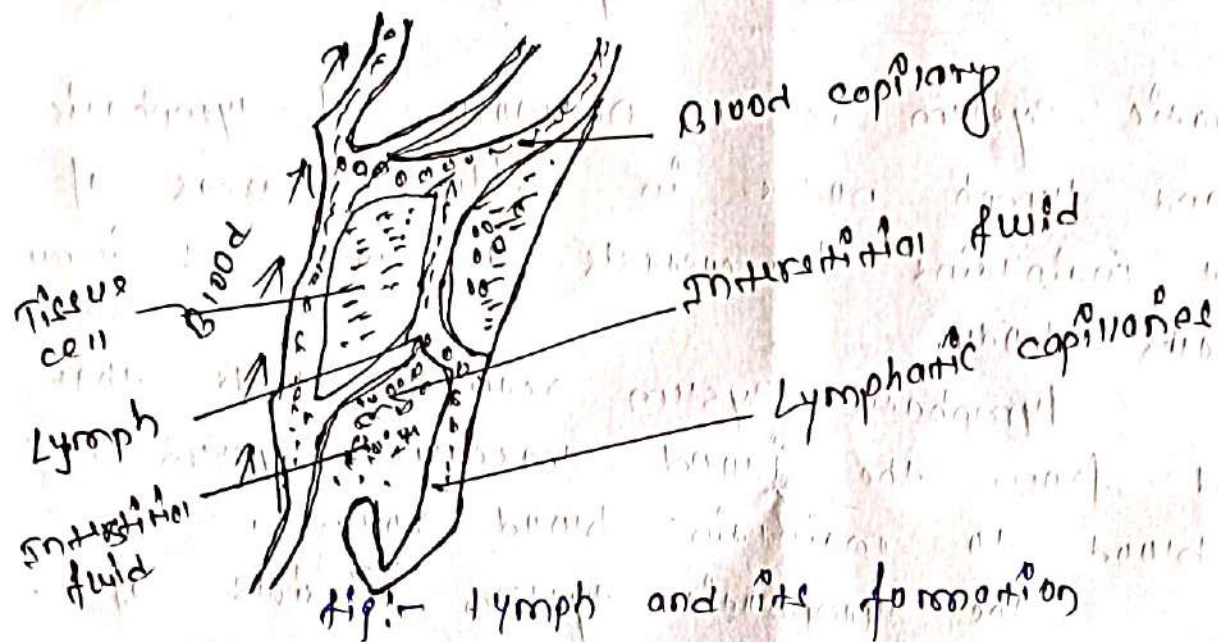 Blood capillary
Interstitial fluid
Lymphatic capillaries
Blood
Tissue
cell
Lymph
Interstitial
fluid
fig:- Lymph and its formation